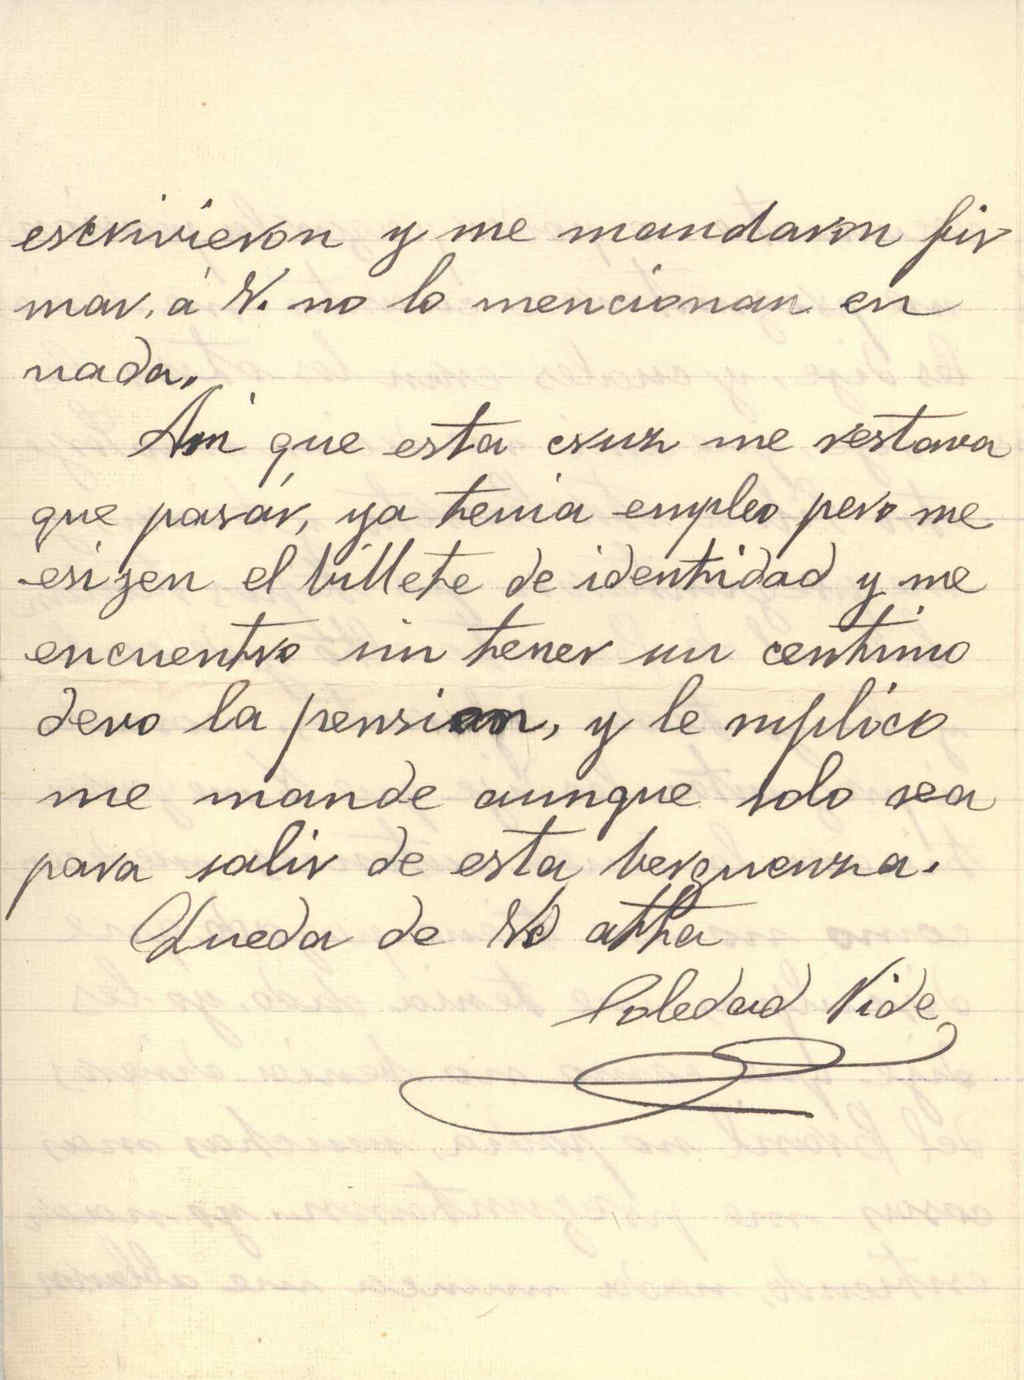 escrivieron y me mandaron fir
mar, á V. no lo mencionan en
nada.
Asi que esta cruz me restava
que pasár, ya tenia empleo pero me
esizen el billete de identidad y me
encuentro sin tener un centimo
devo la pension, y le suplico
me mande aunque solo sea
para salir de esta berguenza.
Queda de Vd atta
Soledad Vide